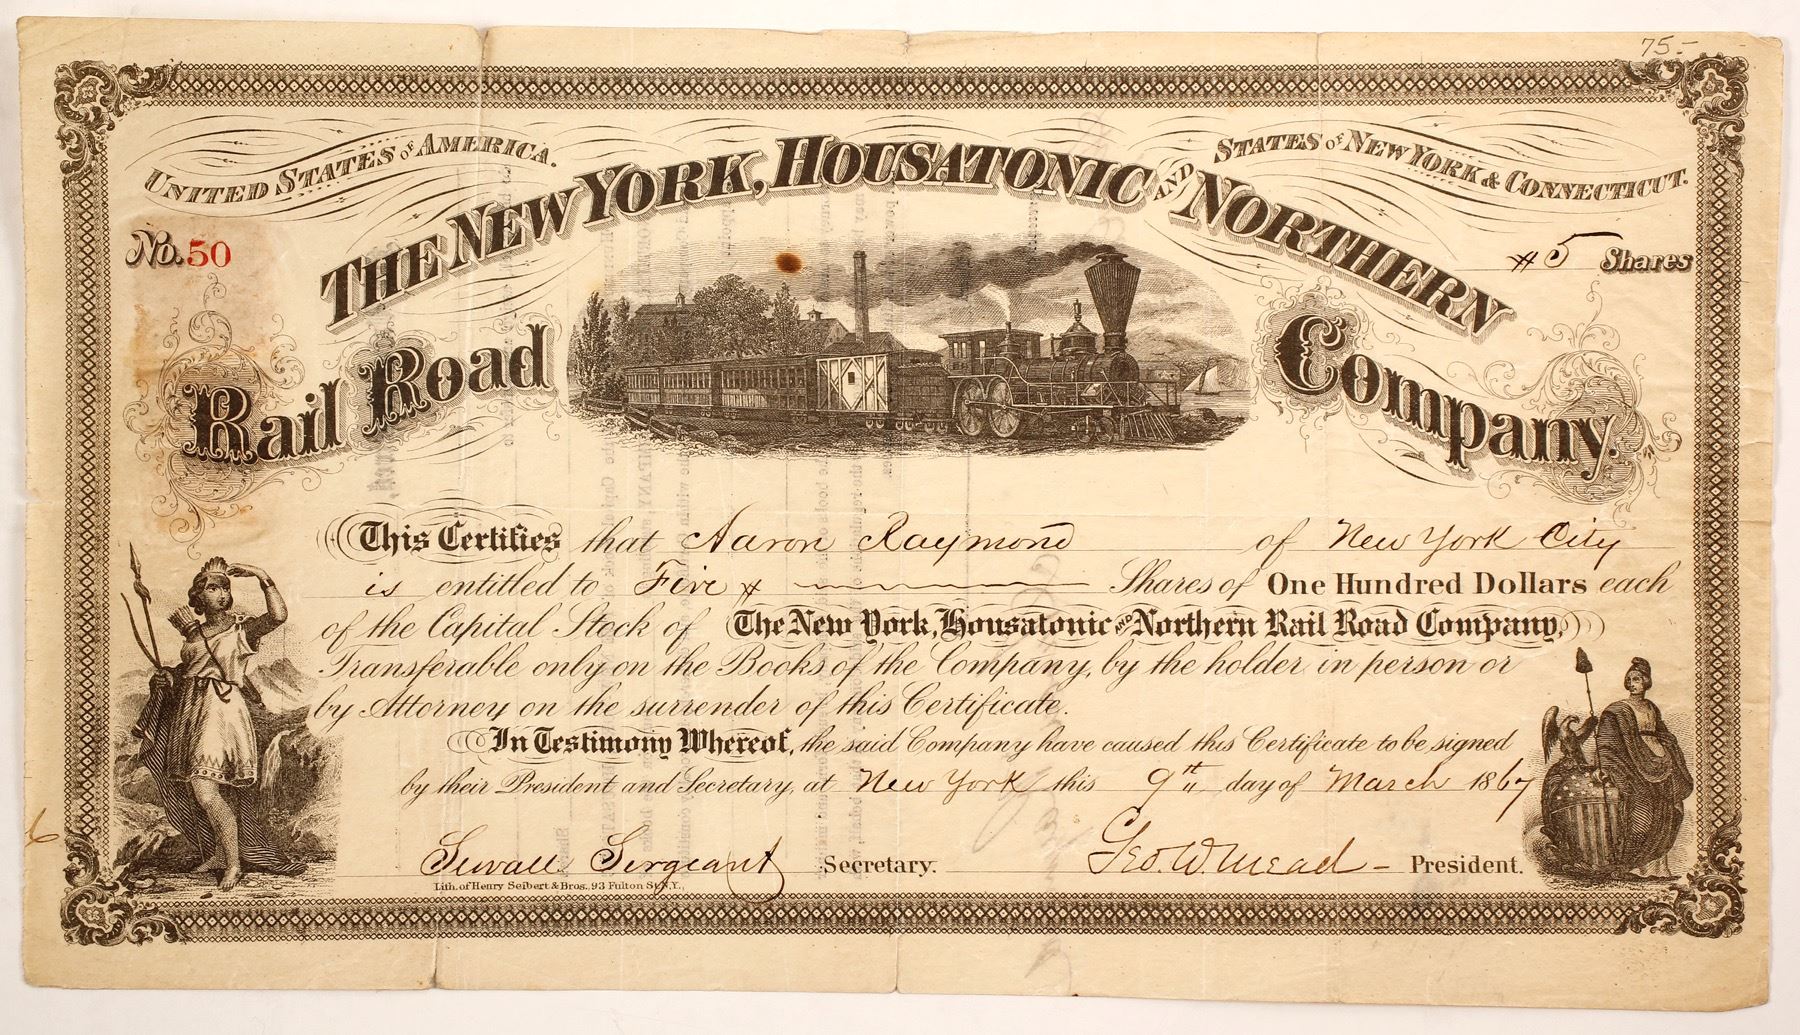 75.-
UNITED STATES OF AMERICA.
STATES OF NEW YORK & CONNECTICUT.
THE NEW YORK, HOUSATONIC AND NORTHERN
No. 50
# 5 Shares
Rail Road Company.
This Certifies that Aaron Raymond of New York City
is entitled to Five # Shares of One Hundred Dollars each
of the Capital Stock of The New York, Housatonic AND Northern Rail Road Company,
Transferable only on the Books of the Company, by the holder in person or
by Attorney on the surrender of this Certificate.
In Testimony Whereof, the said Company have caused this Certificate to be signed
by their President and Secretary, at New York this 9th day of March 1867
Sewall Sergeant Secretary. Geo. W. Mead - President.
Lith. of Henry Seibert & Bros., 93 Fulton St. N.Y.,